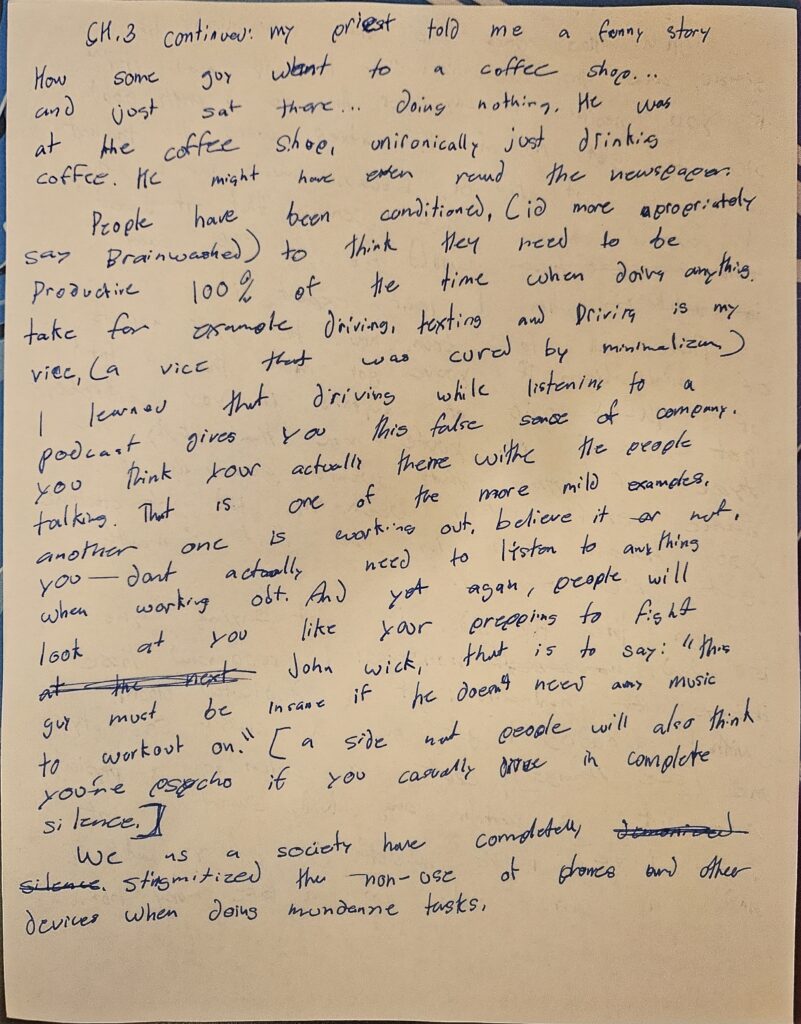 CH.3 continued: my priest told me a funny story
How some guy went to a coffee shop...
and just sat there... doing nothing. He was
at the coffee shop, unironically just drinking
coffee. He might have even read the newspaper.
People have been conditioned, (id more apropriately
say Brainwashed) to think they need to be
Productive 100% of the time when doing anything.
take for example driving, texting and Driving is my
vice, (a vice that was cured by minimalizum)
I learned that driving while listening to a
podcast gives you this false sense of company.
you think your actually there withe the people
talking. That is one of the more mild examples,
another one is working out, believe it or not,
you — dont actually need to listen to anything
when working out. And yet again, people will
look at you like your prepping to fight
at the next John wick, that is to say: "this
guy must be insane if he doesn't need any music
to workout on." [a side not people will also think
you're psycho if you casually drive in complete
silence.]
We as a society have completely demonized
silence. stigmitized the non-use of phones and other
devices when doing mundanne tasks.